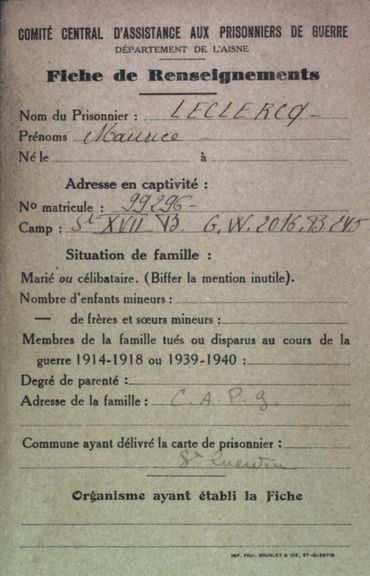 COMITÉ CENTRAL D'ASSISTANCE AUX PRISONNIERS DE GUERRE
DÉPARTEMENT DE L'AISNE
Fiche de Renseignements
Nom du Prisonnier : LECLERCQ
Prénoms Maurice
Né le à
Adresse en captivité :
No matricule : 99296
Camp : St XVII B. G.W. 2016.B.245
Situation de famille :
Marié ou célibataire. (Biffer la mention inutile).
Nombre d'enfants mineurs :
— de frères et sœurs mineurs :
Membres de la famille tués ou disparus au cours de la
guerre 1914-1918 ou 1939-1940 :
Degré de parenté :
Adresse de la famille : C. A. P. g
Commune ayant délivré la carte de prisonnier :
St Quentin
Organisme ayant établi la Fiche
IMP. PAUL DOURLET & CIE, ST-QUENTIN